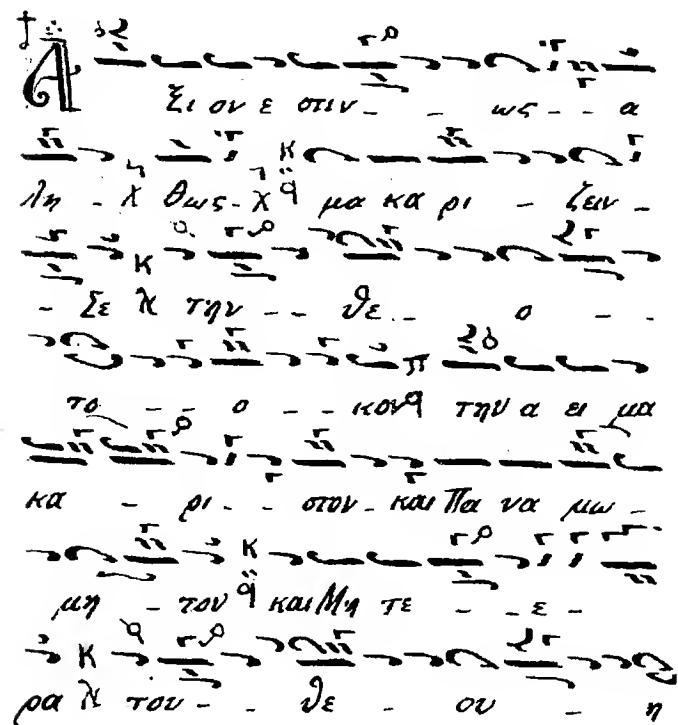 Α ξι ον ε στιν - - ως - - α
λη - θως - μα κα ρι - ζειν -
- Σε την - - θε - - ο - -
το - - ο - - κον την α ει μα
κα - ρι - - στον - και Πα να μω -
μη - τον και Μη τε - - ε -
ρα του - - θε - ου - η